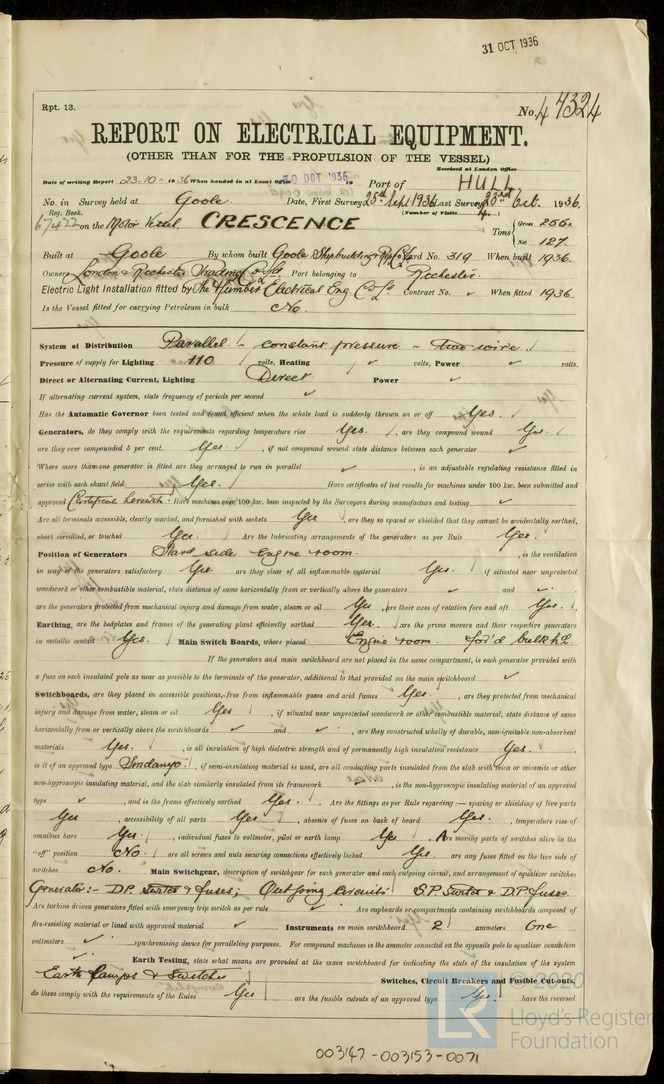 31 OCT 1936
Rpt. 13.
No. 47324
REPORT ON ELECTRICAL EQUIPMENT.
(OTHER THAN FOR THE PROPULSION OF THE VESSEL)
Received at London Office
Date of writing Report 23-10-1936 When handed in at Local Office 30 OCT 1936 19 Port of HULL
No. in Survey held at Goole. Date, First Survey 25th Sept 1936 Last Survey 23rd Oct. 1936.
Reg. Book. (Number of Visits
67422 on the Motor Vessel. CRESCENCE Tons { Gross 255. Net 127.
Built at Goole By whom built Goole Shipbuilding & Rep. Co Ld Yard No. 319 When built 1936.
Owners London & Rochester Trading Co Ld. Port belonging to Rochester.
Electric Light Installation fitted by The Humber Electrical Eng. Co Ld Contract No. ✓ When fitted 1936.
Is the Vessel fitted for carrying Petroleum in bulk No.
System of Distribution Parallel - constant pressure - two wire.
Pressure of supply for Lighting 110 volts, Heating ✓ volts, Power ✓ volts.
Direct or Alternating Current, Lighting Direct Power ✓
If alternating current system, state frequency of periods per second ✓
Has the Automatic Governor been tested and found efficient when the whole load is suddenly thrown on or off Yes.
Generators, do they comply with the requirements regarding temperature rise Yes. , are they compound wound Yes.
are they over compounded 5 per cent. Yes. , if not compound wound state distance between each generator ✓
Where more than one generator is fitted are they arranged to run in parallel ✓ , is an adjustable regulating resistance fitted in
series with each shunt field Yes. Have certificates of test results for machines under 100 kw. been submitted and
approved Certificate herewith. Have machines over 100 kw. been inspected by the Surveyors during manufacture and testing ✓
Are all terminals accessible, clearly marked, and furnished with sockets Yes , are they so spaced or shielded that they cannot be accidentally earthed,
short circuited, or touched Yes. Are the lubricating arrangements of the generators as per Rule Yes.
Position of Generators Starb side Engine room. , is the ventilation
in way of the generators satisfactory Yes. are they clear of all inflammable material Yes. if situated near unprotected
woodwork or other combustible material, state distance of same horizontally from or vertically above the generators ✓ and ✓
are the generators protected from mechanical injury and damage from water, steam or oil Yes , are their axes of rotation fore and aft Yes.
Earthing, are the bedplates and frames of the generating plant efficiently earthed Yes. are the prime movers and their respective generators
in metallic contact Yes. Main Switch Boards, where placed Engine room for'd bulkhd.
If the generators and main switchboard are not placed in the same compartment, is each generator provided with
a fuse on each insulated pole as near as possible to the terminals of the generator, additional to that provided on the main switchboard ✓
Switchboards, are they placed in accessible positions, free from inflammable gases and acid fumes Yes. , are they protected from mechanical
injury and damage from water, steam or oil Yes , if situated near unprotected woodwork or other combustible material, state distance of same
horizontally from or vertically above the switchboards ✓ and ✓ , are they constructed wholly of durable, non-ignitable non-absorbent
materials Yes. , is all insulation of high dielectric strength and of permanently high insulation resistance Yes.
is it of an approved type Sindanyo. , if semi-insulating material is used, are all conducting parts insulated from the slab with mica or micanite or other
non-hygroscopic insulating material, and the slab similarly insulated from its framework ✓ , is the non-hygroscopic insulating material of an approved
type ✓ , and is the frame effectively earthed Yes. Are the fittings as per Rule regarding:— spacing or shielding of live parts
Yes , accessibility of all parts Yes , absence of fuses on back of board Yes. , temperature rise of
omnibus bars Yes. , individual fuses to voltmeter, pilot or earth lamp Yes . Are moving parts of switches alive in the
"off" position No. are all screws and nuts securing connections effectively locked Yes. are any fuses fitted on the live side of
switches No. Main Switchgear, description of switchgear for each generator and each outgoing circuit, and arrangement of equalizer switches
Generator:- D.P. Switch & fuses; Outgoing Circuits S.P. Switch & D.P. fuses.
Are turbine driven generators fitted with emergency trip switch as per rule ✓ Are cupboards or compartments containing switchboards composed of
fire-resisting material or lined with approved material ✓ Instruments on main switchboard 2 ammeters One
voltmeters ✓ synchronising device for paralleling purposes. For compound machines is the ammeter connected on the opposite pole to equaliser connection
✓ Earth Testing, state what means are provided at the main switchboard for indicating the state of the insulation of the system
Earth lamps & Switches Switches, Circuit Breakers and Fusible Cut-outs,
do these comply with the requirements of the Rules Yes are the fusible cutouts of an approved type Yes. have the reversed
© 2020
LR
Lloyd's Register
Foundation
003147-003153-0071